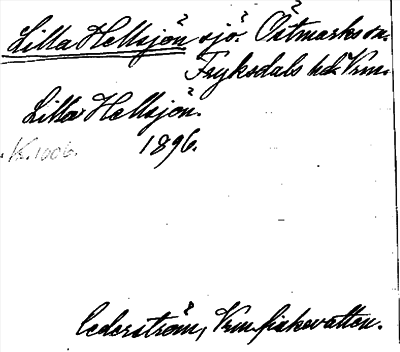 Lilla Hellsjön sjö. Östmarks sn.
Fryksdals hd. Vrm.
Lilla Hellsjön.
1896.
Cederström, Vrm fiskevatten.